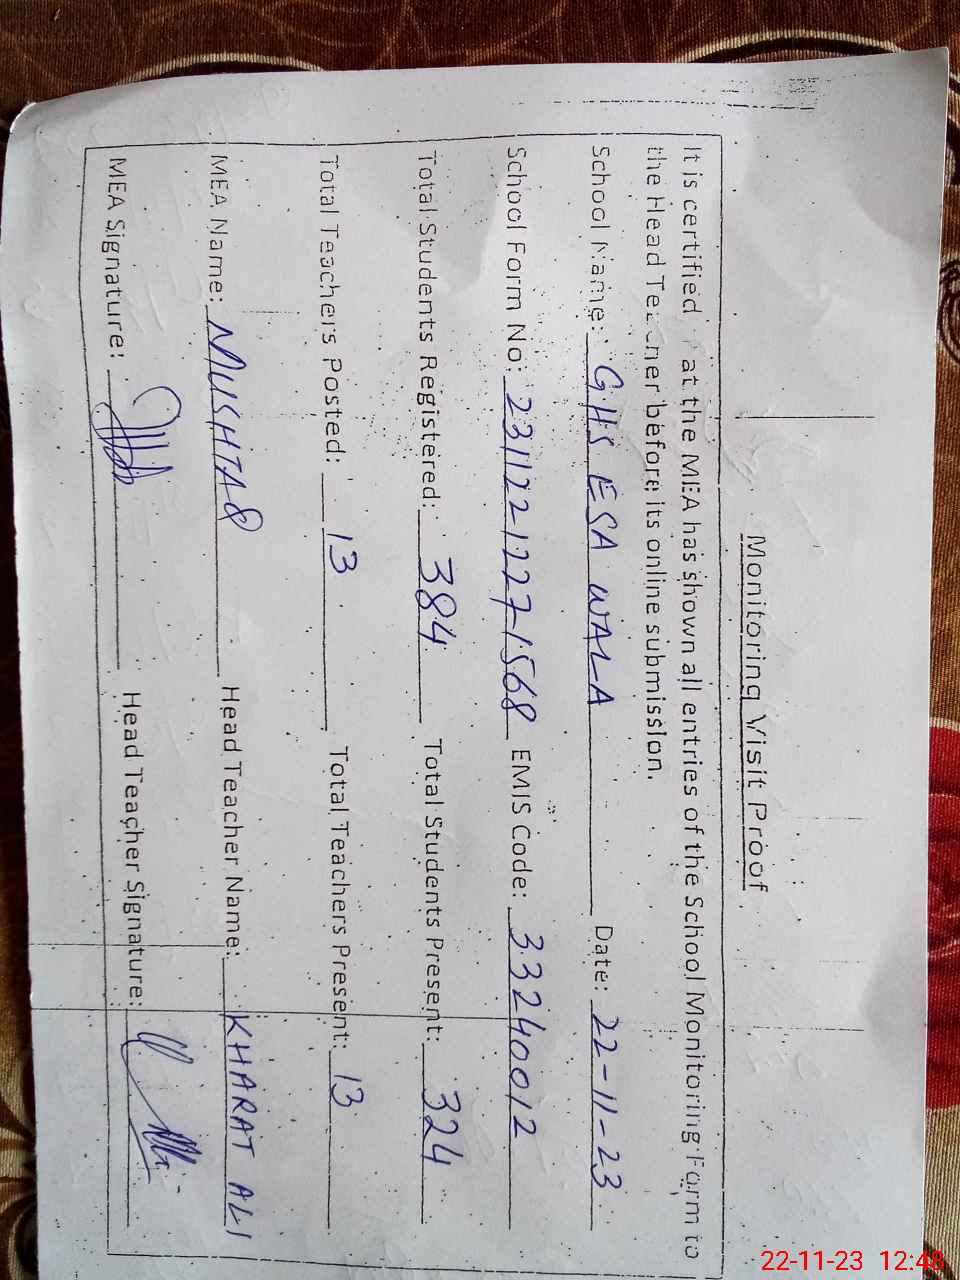 Monitoring Visit Proof
It is certified at the MEA has shown all entries of the School Monitoring Form to
the Head Teacher before its online submission.
School Name: GHS ESA WALA Date: 22-11-23
School Form No: EMIS Code: 33240012
Total Students Registered: 384 Total Students Present: 324
Total Teachers Posted: 13 Total Teachers Present: 13
MEA Name: MUSHTAQ Head Teacher Name: KHARAT ALI
MEA Signature: Head Teacher Signature:
22-11-23 12:48